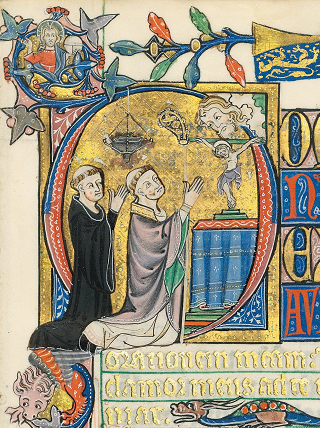 DO
N
E
AU
orationem meam:
clamor meus ad te
niat.